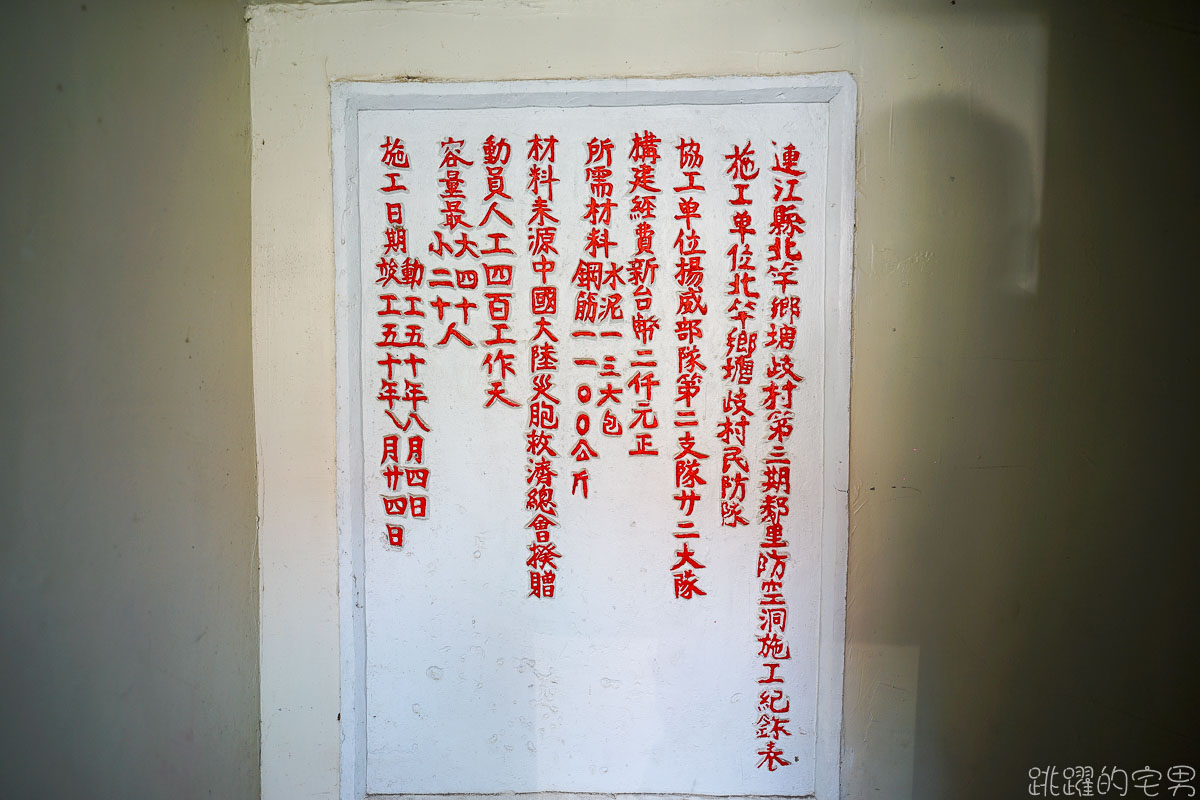 連江縣北竿鄉塘岐村第三期鄰里防空洞施工紀錄表
施工单位北竿鄉塘岐村民防隊
協工单位揚威部隊第二支隊廿二大隊
構建經費新台幣二仟元正
所需材料水泥一三六包
鋼筋一一〇〇公斤
材料來源中國大陸災胞救濟總會撥贈
動員人工四百工作天
容量最大四十人
小二十
施工日期動工五十年八月四日
竣工五十年八月廿四日
跳躍的宅男